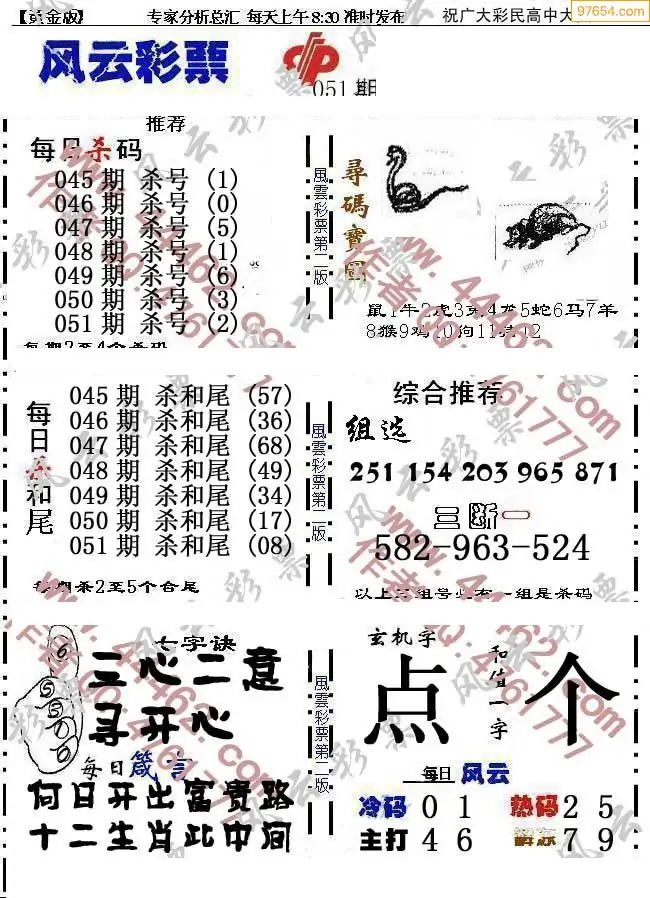 【黄金版】 专家分析总汇 每天上午8:30准时发布 祝广大彩民高中大
97654.com
风云彩票
051期
推荐
每日杀码
045期 杀号 (1)
046期 杀号 (0)
047期 杀号 (5)
048期 杀号 (1)
049期 杀号 (6)
050期 杀号 (3)
051期 杀号 (2)
每期2至4个杀码
風雲彩票第二版
尋碼寶圖
鼠1牛2虎3兔4龙5蛇6马7羊
8猴9鸡10狗11 12
每日杀和尾
045期 杀和尾 (57)
046期 杀和尾 (36)
047期 杀和尾 (68)
048期 杀和尾 (49)
049期 杀和尾 (34)
050期 杀和尾 (17)
051期 杀和尾 (08)
每期杀2至5个合尾
風雲彩票第二版
综合推荐
组选
251 154 203 965 871
三断一
582-963-524
以上三组号必有一组是杀码
七字诀
三心二意
寻开心
每日箴言
何日开出富贵路
十二生肖此中间
風雲彩票第二版
玄机字
和值一字
点 个
每日 风云
冷码 0 1 热码 2 5
主打 4 6 解冻 7 9
www.44462.com
风云彩票